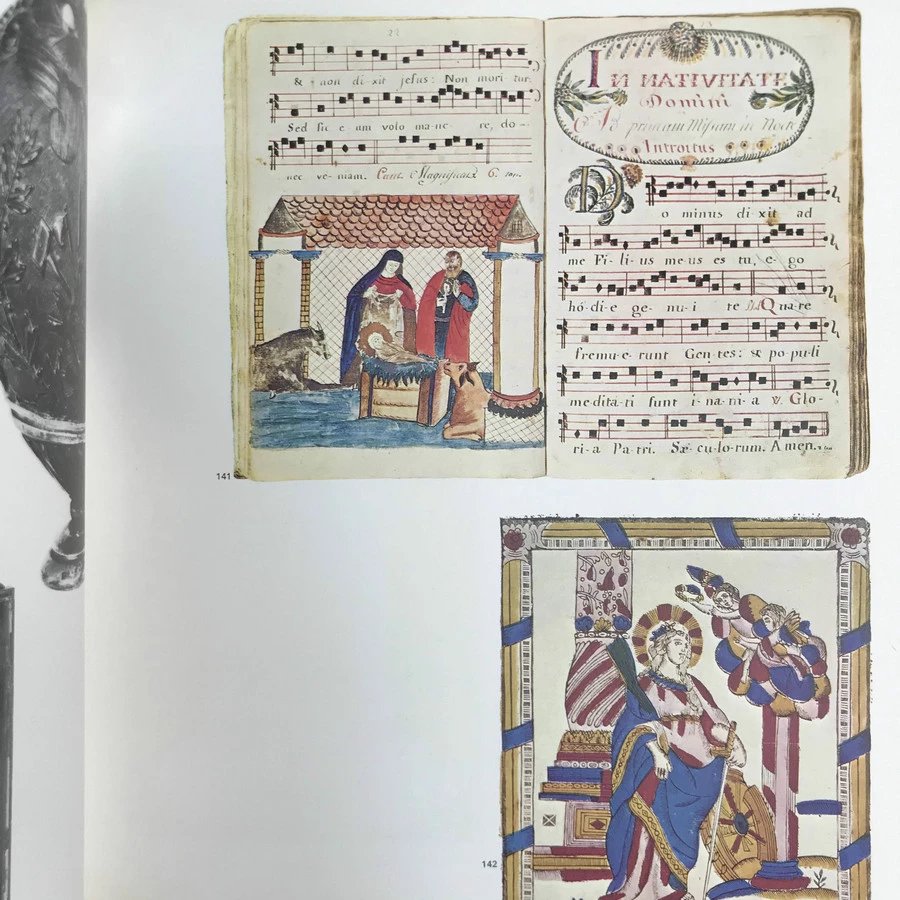 22
& non di-xit jesus: Non mori-tur.
Sed sic e-um volo ma-ne-re, do-
nec ve-niam. Cant. Magnificat 6. ton.
141
23
IN NATIVITATE
Domini
Ad primam Missam in Nocte
Introitus
Do minus di-xit ad
me Fi-li-us me-us es tu, e-go
hó-di-e ge-nu-i te Quare
fremu-e-runt Gen-tes: & po-pu-li
me-dita-ti sunt i-na-ni-a ℣. Glo-
ri-a Pa-tri. Sæ-cu-lo-rum. Amen.
142